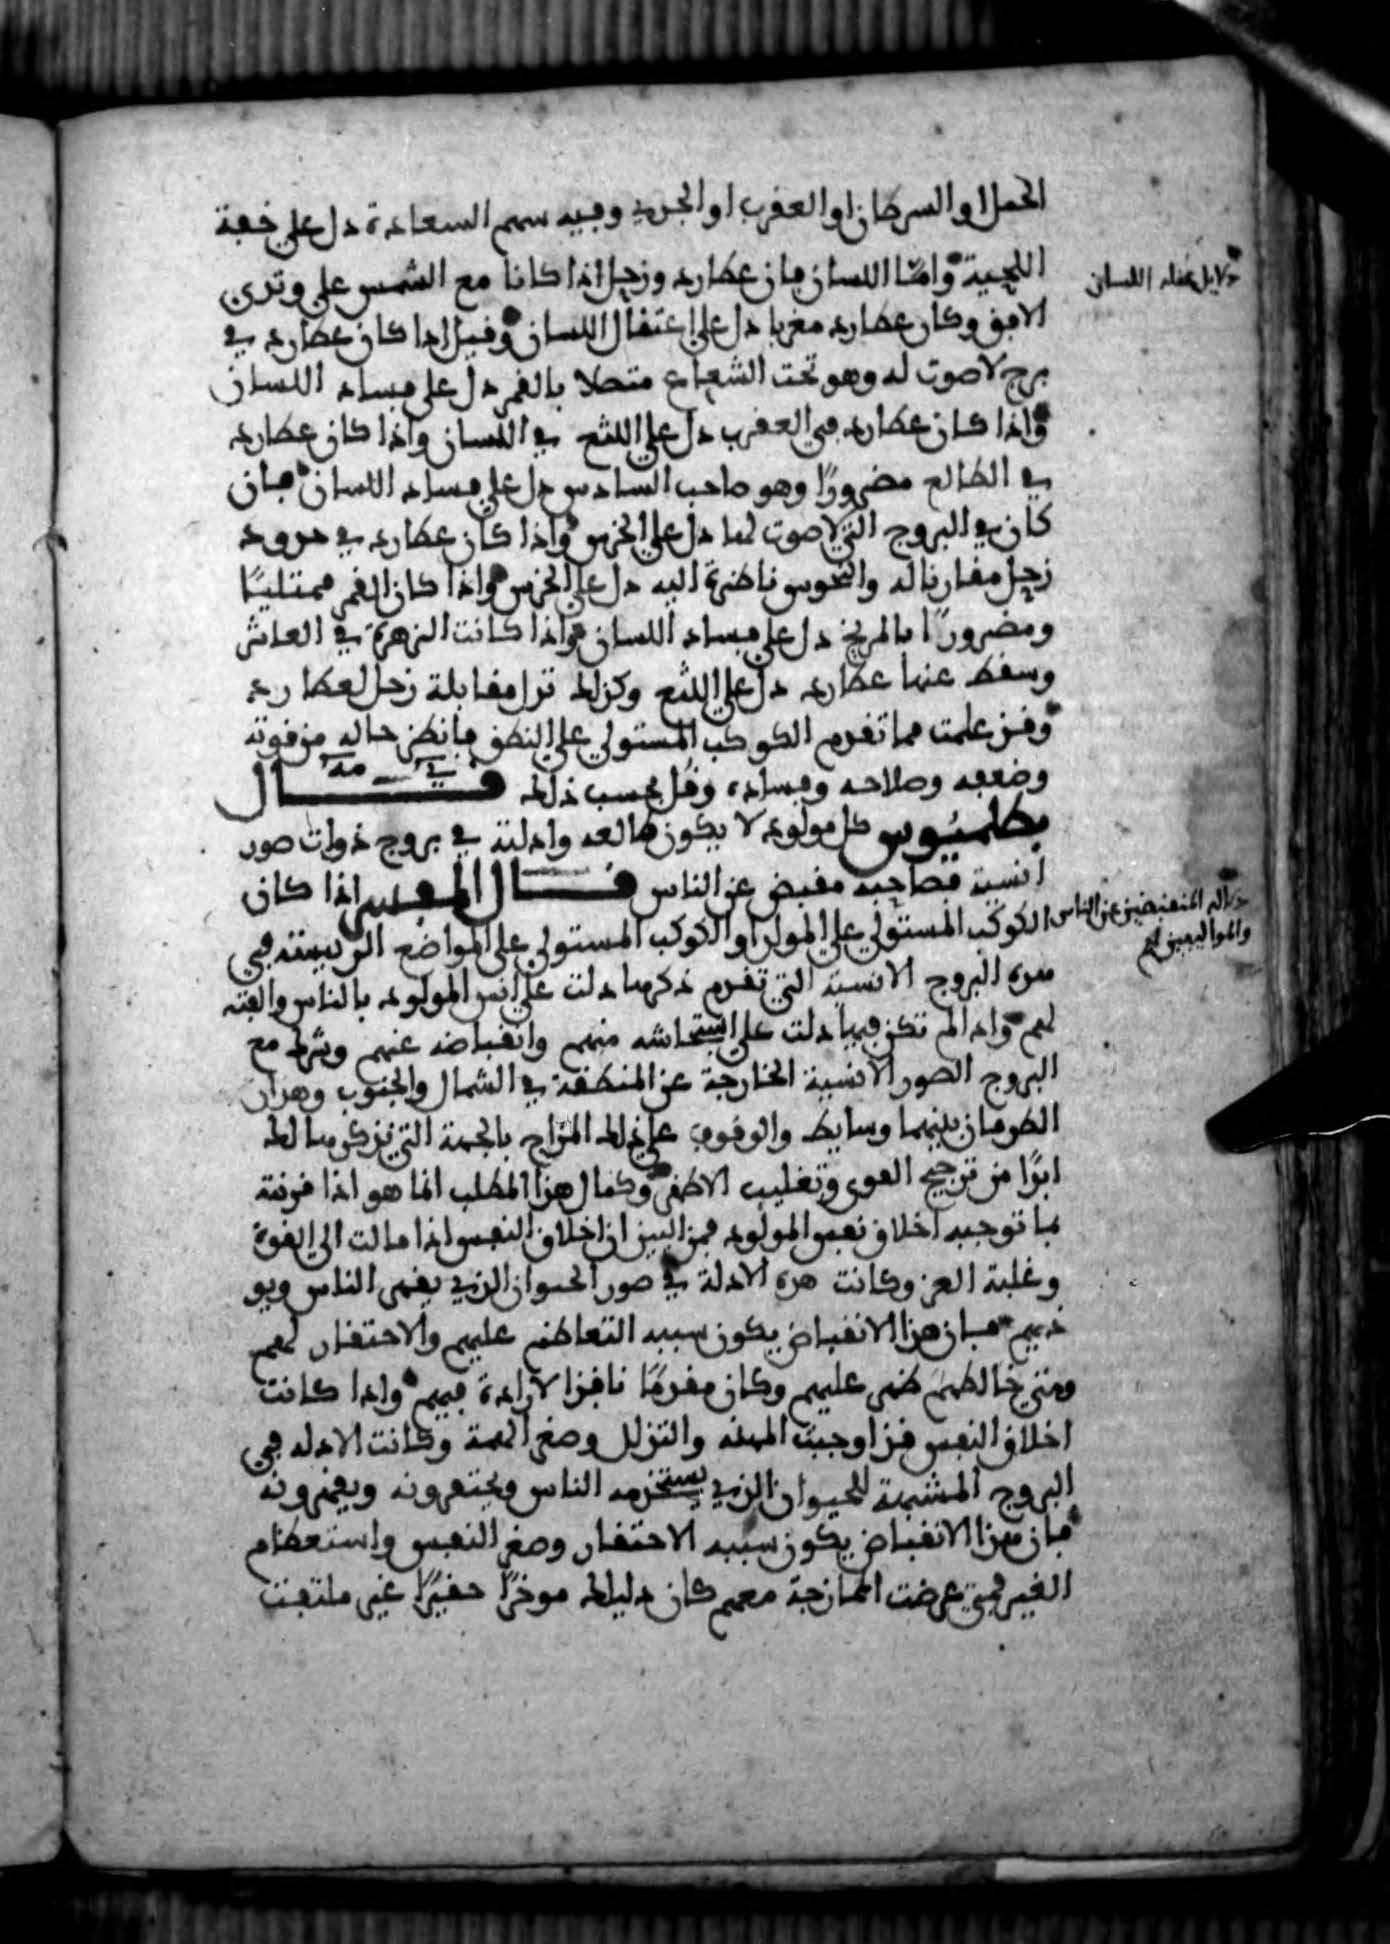 الحمل او السرطان او العقرب او الجدي وفيه سهم السعادة دل على خفة
اللحية وامّا اللسان فان عطارد وزحل اذا كانا مع الشمس على وتدي
دلايل عقله اللسان
الافق وكان عطارد مغربا دل على اعتقال اللسان وقيل اذا كان عطارد في
برج لا صوت له وهو تحت الشعاع متصلا بالقمر دل على فساد اللسان
واذا كان عطارد في العقرب دل على اللثغ في اللسان واذا كان عطارد
في الطالع مضرورًا وهو صاحب السادس دل على فساد اللسان فان
كان في البروج التي لا صوت لها دل على الخرس واذا كان عطارد في حدود
زحل مقارنا له والنحوس ناظرة اليه دل على الخرس واذا كان القمر ممتليًا
ومضرورًا بالمريخ دل على فساد اللسان واذا كانت الزهرة في العاشر
وسقط عنها عطارد دل على اللثغ وكذلك تدل مقابلة زحل لعطارد
وقد علمت مما تقدم الكوكب المستولي على النطق فانظر حاله من قوته
وضعفه وصلاحه وفساده وقل بحسب ذلك قال
بطلميوس كل مولود لا يكون طالعه وادلته في بروج ذوات صور
انسية فصاحبه مقبض عن الناس قال المفسر اذا كان
دلاله المنقبضين عن الناس
والموالفين لهم
الكوكب المستولي على المولد او الكوكب المستولي على المواضع الرييسة في
هذه البروج الانسية التي تقدم ذكرها دلت على انس المولود بالناس والفته
لهم واذا لم تكن فيها دلت على استحاشه منهم وانقباضه عنهم وشرط مع
البروج الصور الانسية الخارجة عن المنطقة في الشمال والجنوب وهذان
الطرفان بينهما وسايط والوقوف على ذلك المزاج بالجهة التي نذكرها لك
ابدًا من ترجيح القوى وتغليب الاظهر وكمال هذا المطلب انما هو اذا قرنته
بما توجبه اخلاق نفس المولود فمن البين ان اخلاق النفس اذا مالت الى القوة
وغلبة العز وكانت هذه الادلة في صور الحيوان الذي يقهر الناس ويو
ذيهم فان هذا الانقباض يكون سببه التعاظم عليهم والاحتقار لهم
ومتى خالطهم ظهر عليهم وكان مقدمًا نافذا لارادة فيهم واذا كانت
اخلاق النفس قد اوجبت المهنه والتذلل وصغر الهمة وكانت الادله في
البروج المشبهة للحيوان الذي يستخدمه الناس ويحتقرونه ويقهرونه
فان هذا الانقباض يكون سببه الاحتقار وصغر النفس واستعظام
الغير فمتى عرضت الممازجة معهم كان دليلك موخرًا حقيرًا غير ملتفت